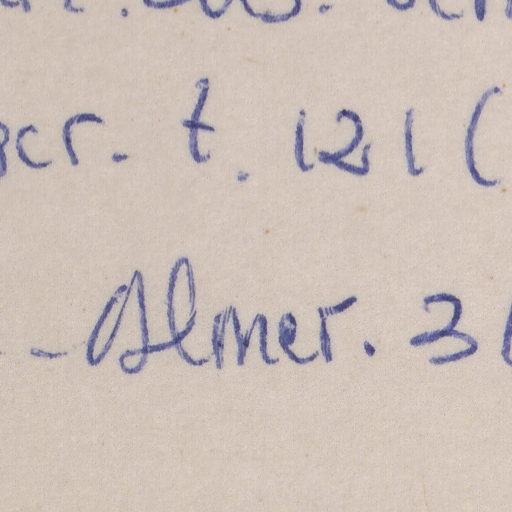 scr. t. 121 (
- Almer. 3